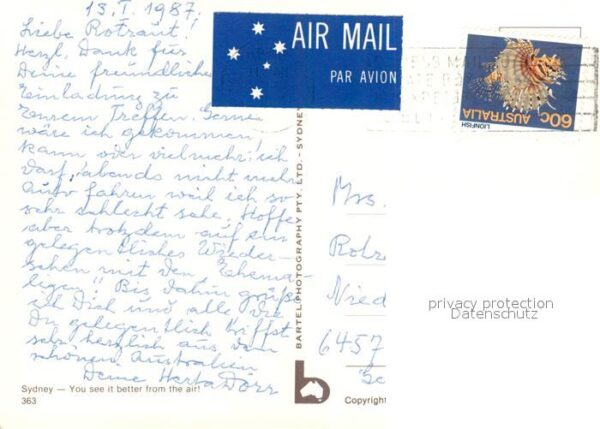 13. I. 1987.
Liebe Rotraut!
Herzl. Dank für
Deine freundliche
Einladung zu
Eurem Treffen. Gerne
wäre ich gekommen!
kann oder vielmehr: ich
darf abends nicht mehr
Auto fahren weil ich so
sehr schlecht sehe. Hoffe
aber trotzdem auf ein
gelegentliches Wieder-
sehen mit den Ehema-
ligen!! Bis dahin grüße
ich Dich und alle die
Du gelegentlich triffst
sehr herzlich aus dem
schönen Australien
Deine Herta Dörr
Sydney — You see it better from the air!
363
AIR MAIL
PAR AVION
60c AUSTRALIA
LIONFISH
BARTEL PHOTOGRAPHY PTY. LTD. - SYDNEY
b
Copyright
Mrs.
Rotr
Nied
6457
privacy protection
Datenschutz